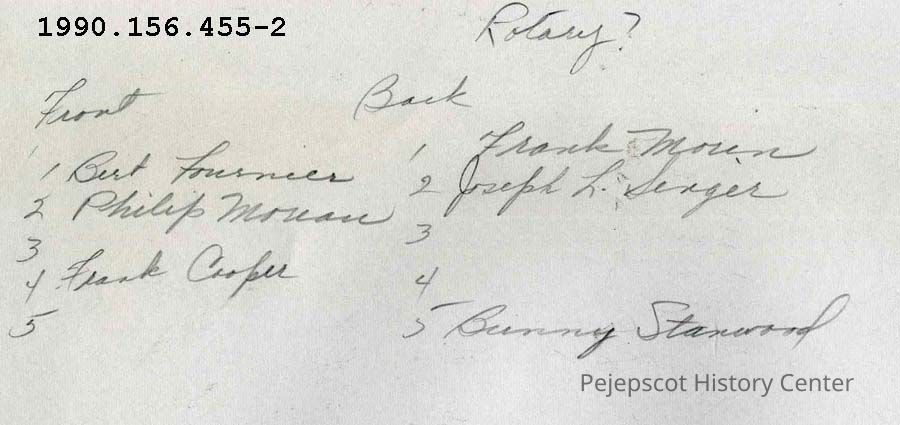 1990.156.455-2
Rotary?
Front
1 Bert Fournier
2 Philip Morean
3
4 Frank Cooper
5
Back
1 Frank Morin
2 Joseph L. Senger
3
4
5 Bunny Stanwood
Pejepscot History Center